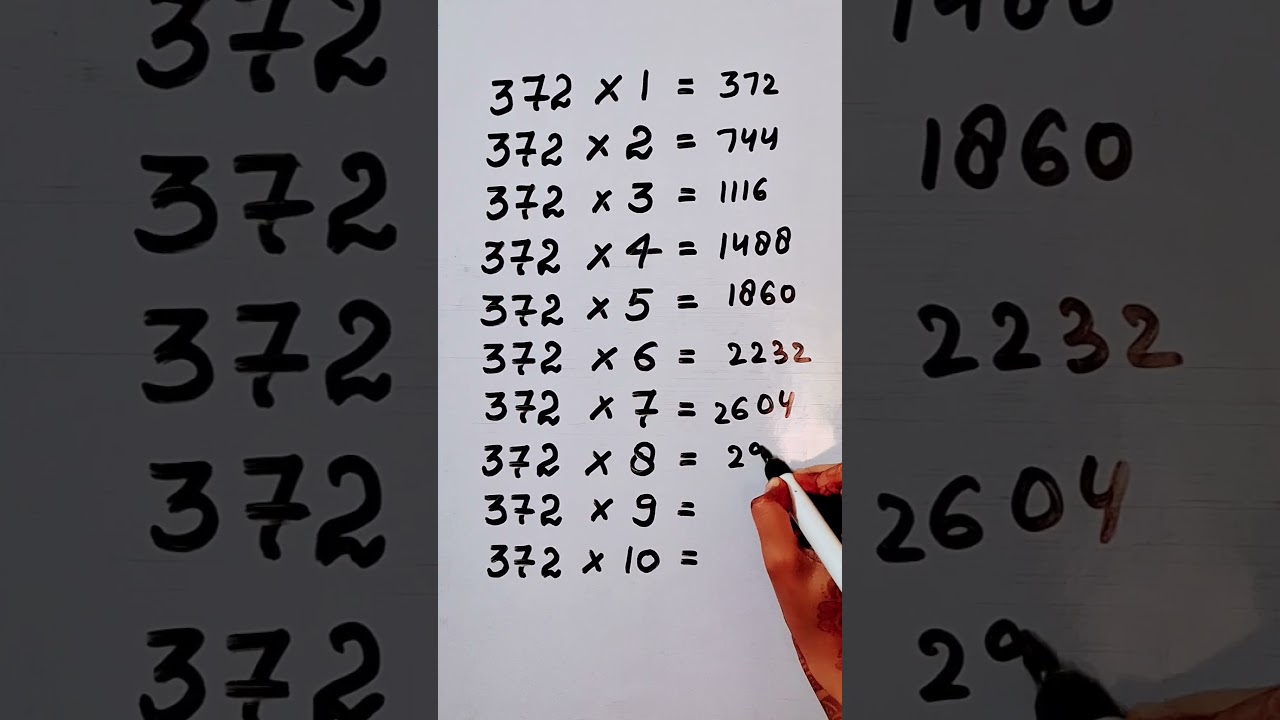 372 × 1 = 372
372 × 2 = 744
372 × 3 = 1116
372 × 4 = 1488
372 × 5 = 1860
372 × 6 = 2232
372 × 7 = 2604
372 × 8 = 29
372 × 9 =
372 × 10 =